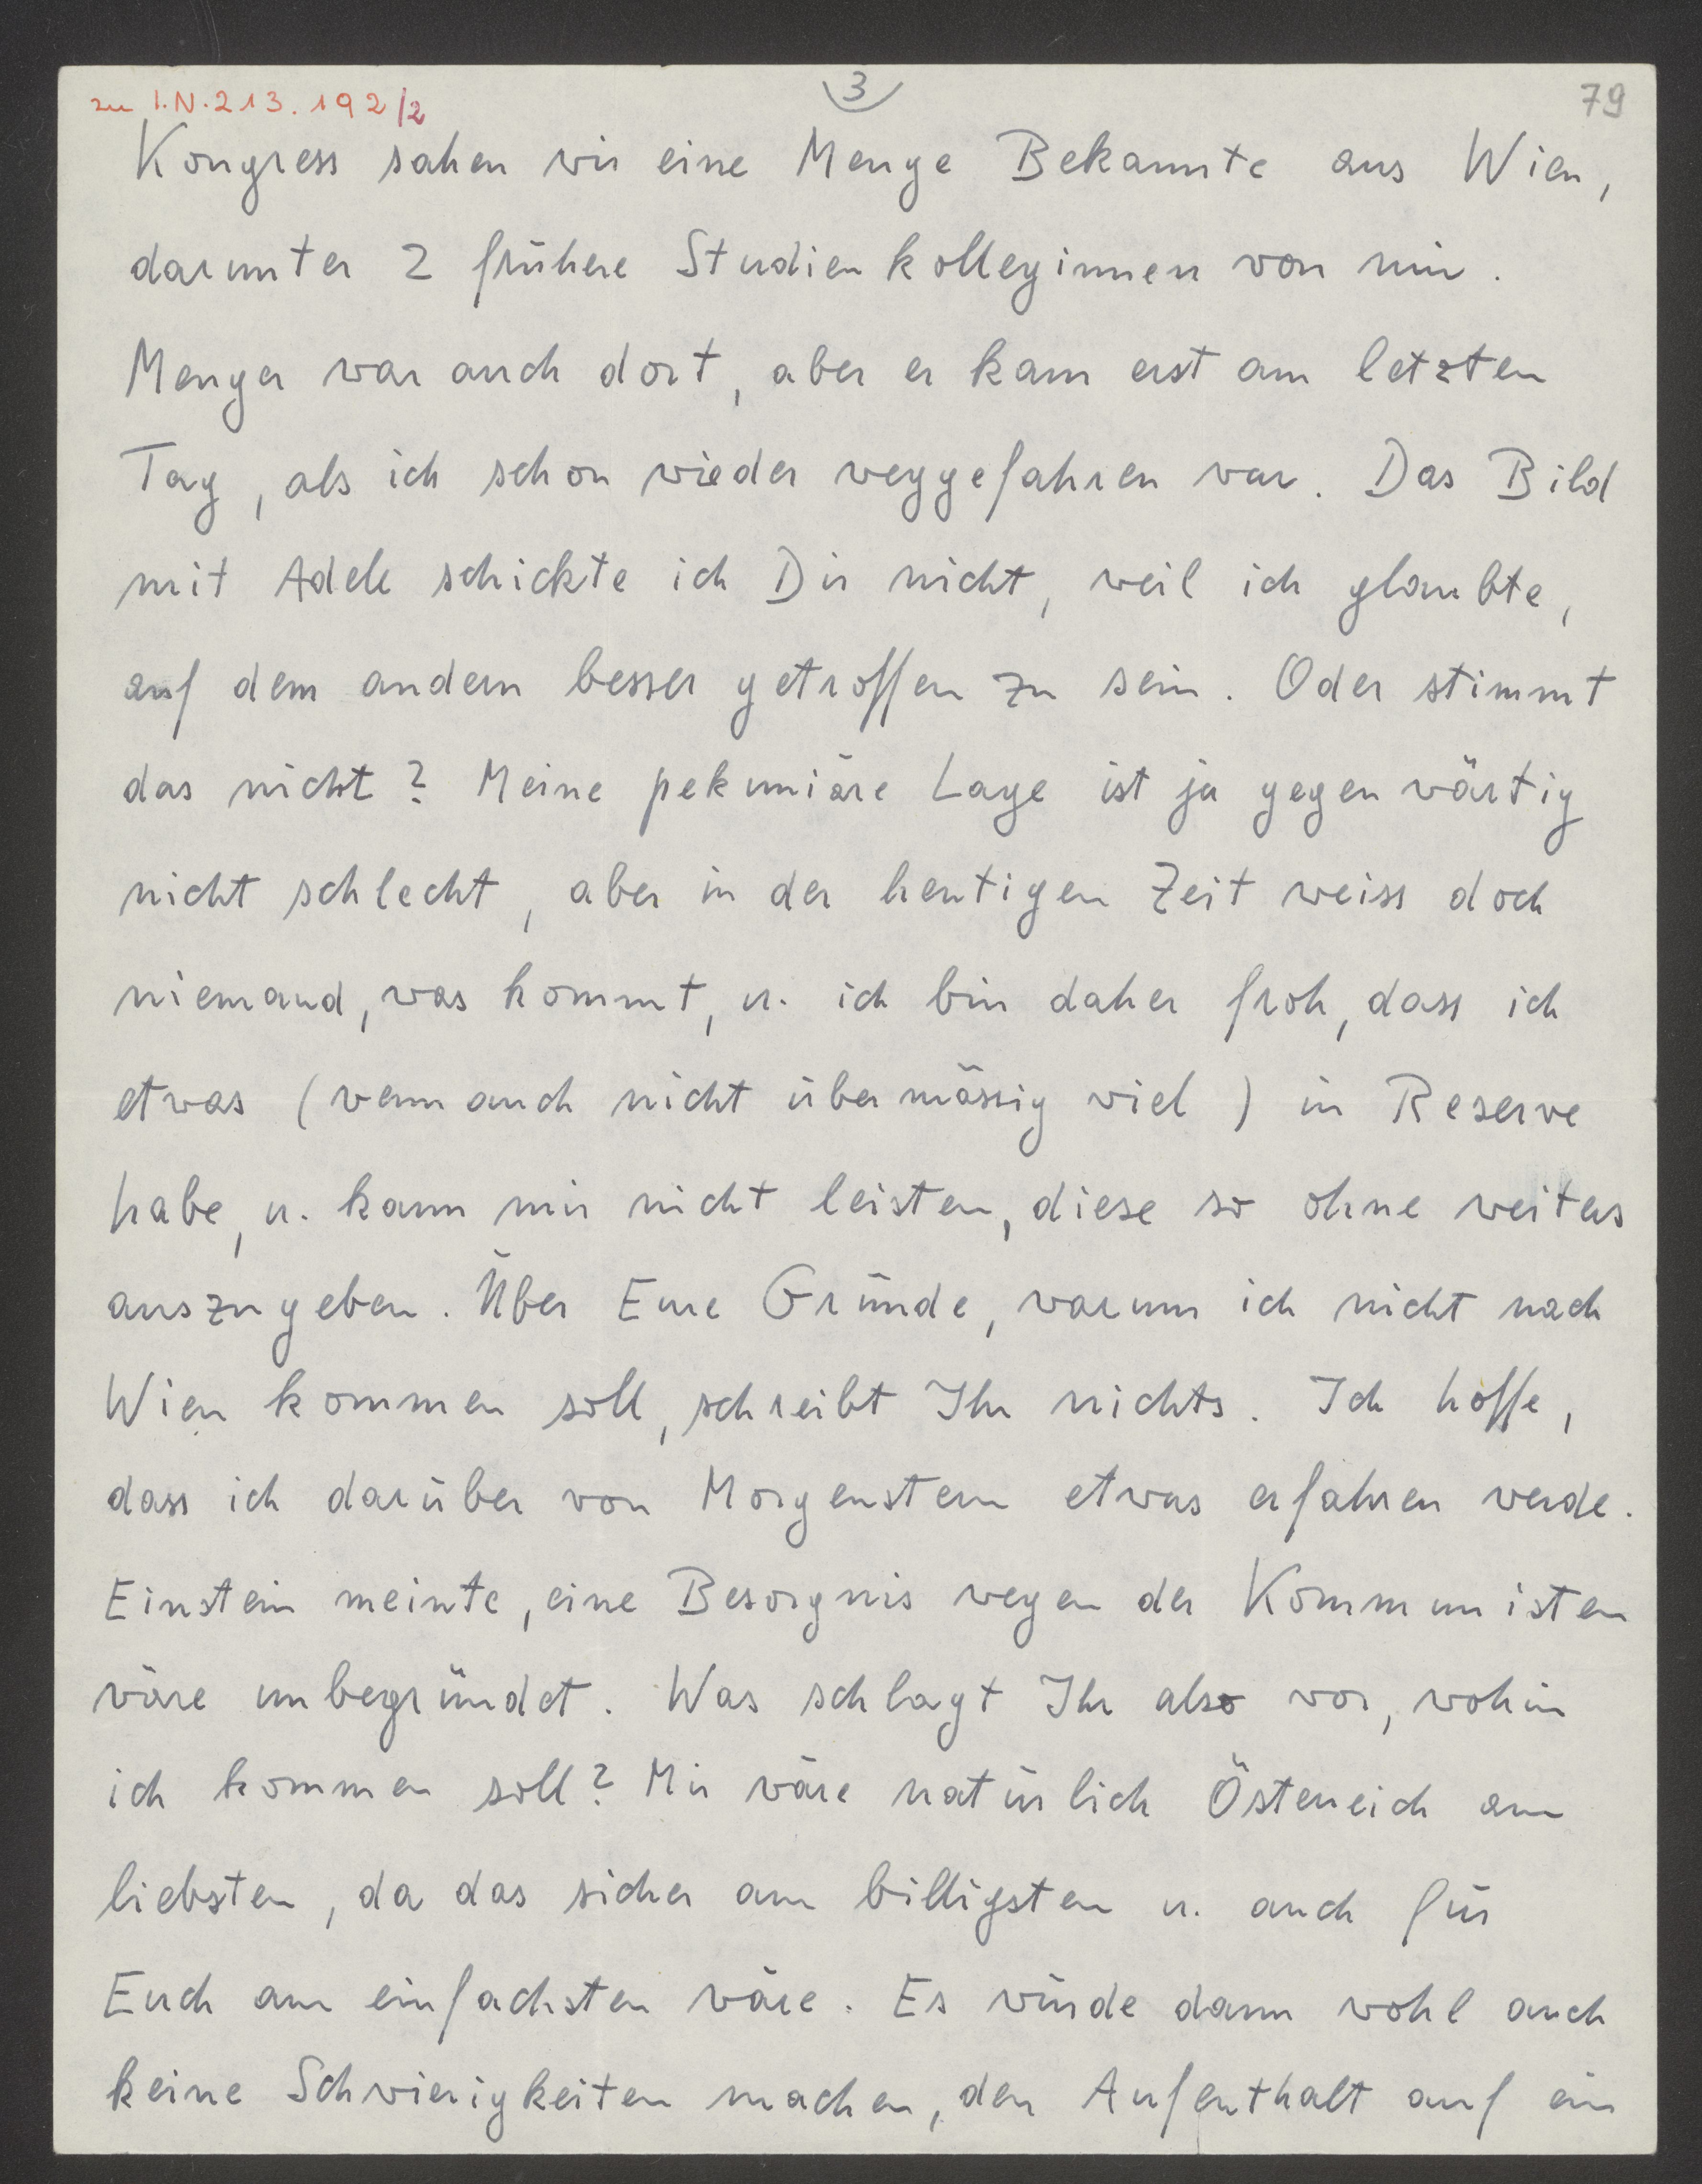 zu I.N.213.192/2
3
79
Kongress sahen wir eine Menge Bekannte aus Wien,
darunter 2 frühere Studienkolleginnen von mir.
Menger war auch dort, aber er kam erst am letzten
Tag, als ich schon wieder weggefahren war. Das Bild
mit Adele schickte ich Dir nicht, weil ich glaubte,
auf dem andern besser getroffen zu sein. Oder stimmt
das nicht? Meine pekuniäre Lage ist ja gegenwärtig
nicht schlecht, aber in der heutigen Zeit weiss doch
niemand, was kommt, u. ich bin daher froh, dass ich
etwas (wenn auch nicht übermässig viel) in Reserve
habe, u. kann mir nicht leisten, diese so ohne weiters
auszugeben. Über Eure Gründe, warum ich nicht nach
Wien kommen soll, schreibt Ihr nichts. Ich hoffe,
dass ich darüber von Morgenstern etwas erfahren werde.
Einstein meinte, eine Besorgnis wegen der Kommunisten
wäre unbegründet. Was schlagt Ihr also vor, wohin
ich kommen soll? Mir wäre natürlich Österreich am
liebsten, da das sicher am billigsten u. auch für
Euch am einfachsten wäre. Es würde dann wohl auch
keine Schwierigkeiten machen, den Aufenthalt auf ein